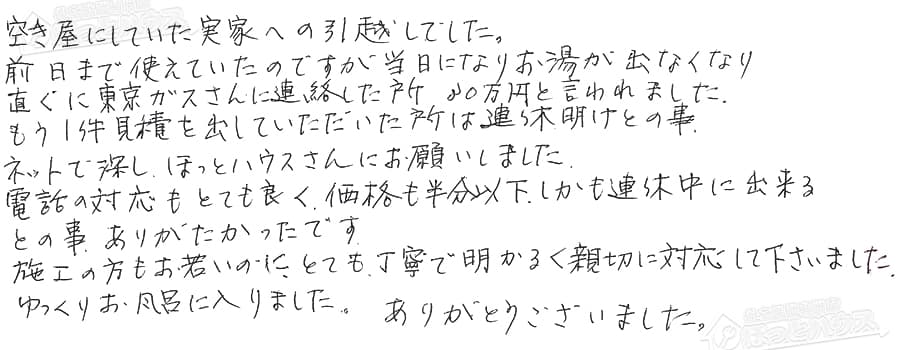 空き屋にしていた実家への引越しでした。
前日まで使えていたのですが当日になりお湯が出なくなり
直ぐに東京ガスさんに連絡した所 20万円と言われました.
もう1件見積を出していただいた所は連休明けとの事.
ネットで探し、ほっとハウスさんにお願いしました.
電話の対応もとても良く、価格も半分以下、しかも連休中に出来る
との事、ありがたかったです
施工の方もお若いのに、とても、丁寧で明かるく親切に対応して下さいました.
ゆっくりお風呂に入りました。 ありがとうございました。